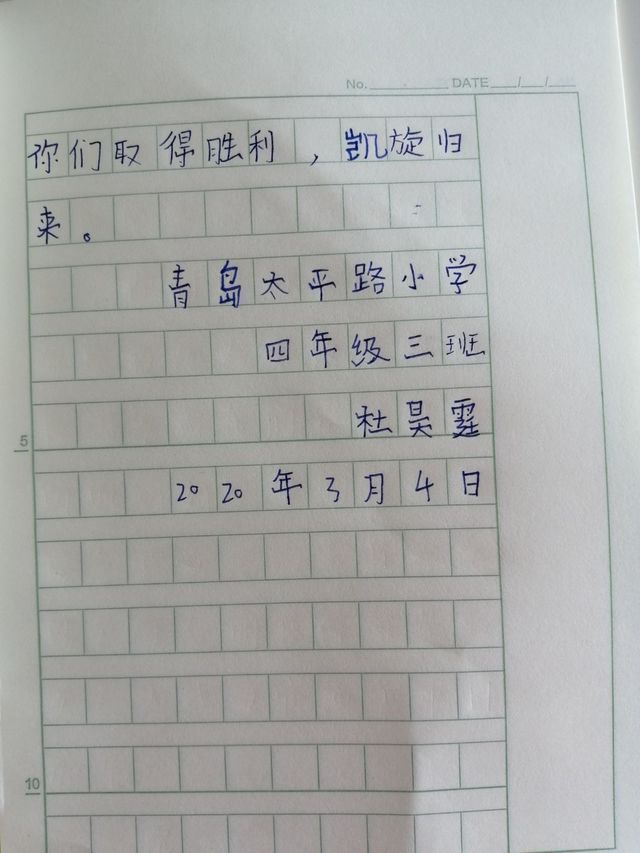 No. DATE / /
你们取得胜利，凯旋归
来。
青岛太平路小学
四年级三班
5 杜昊霆
2020年3月4日
10